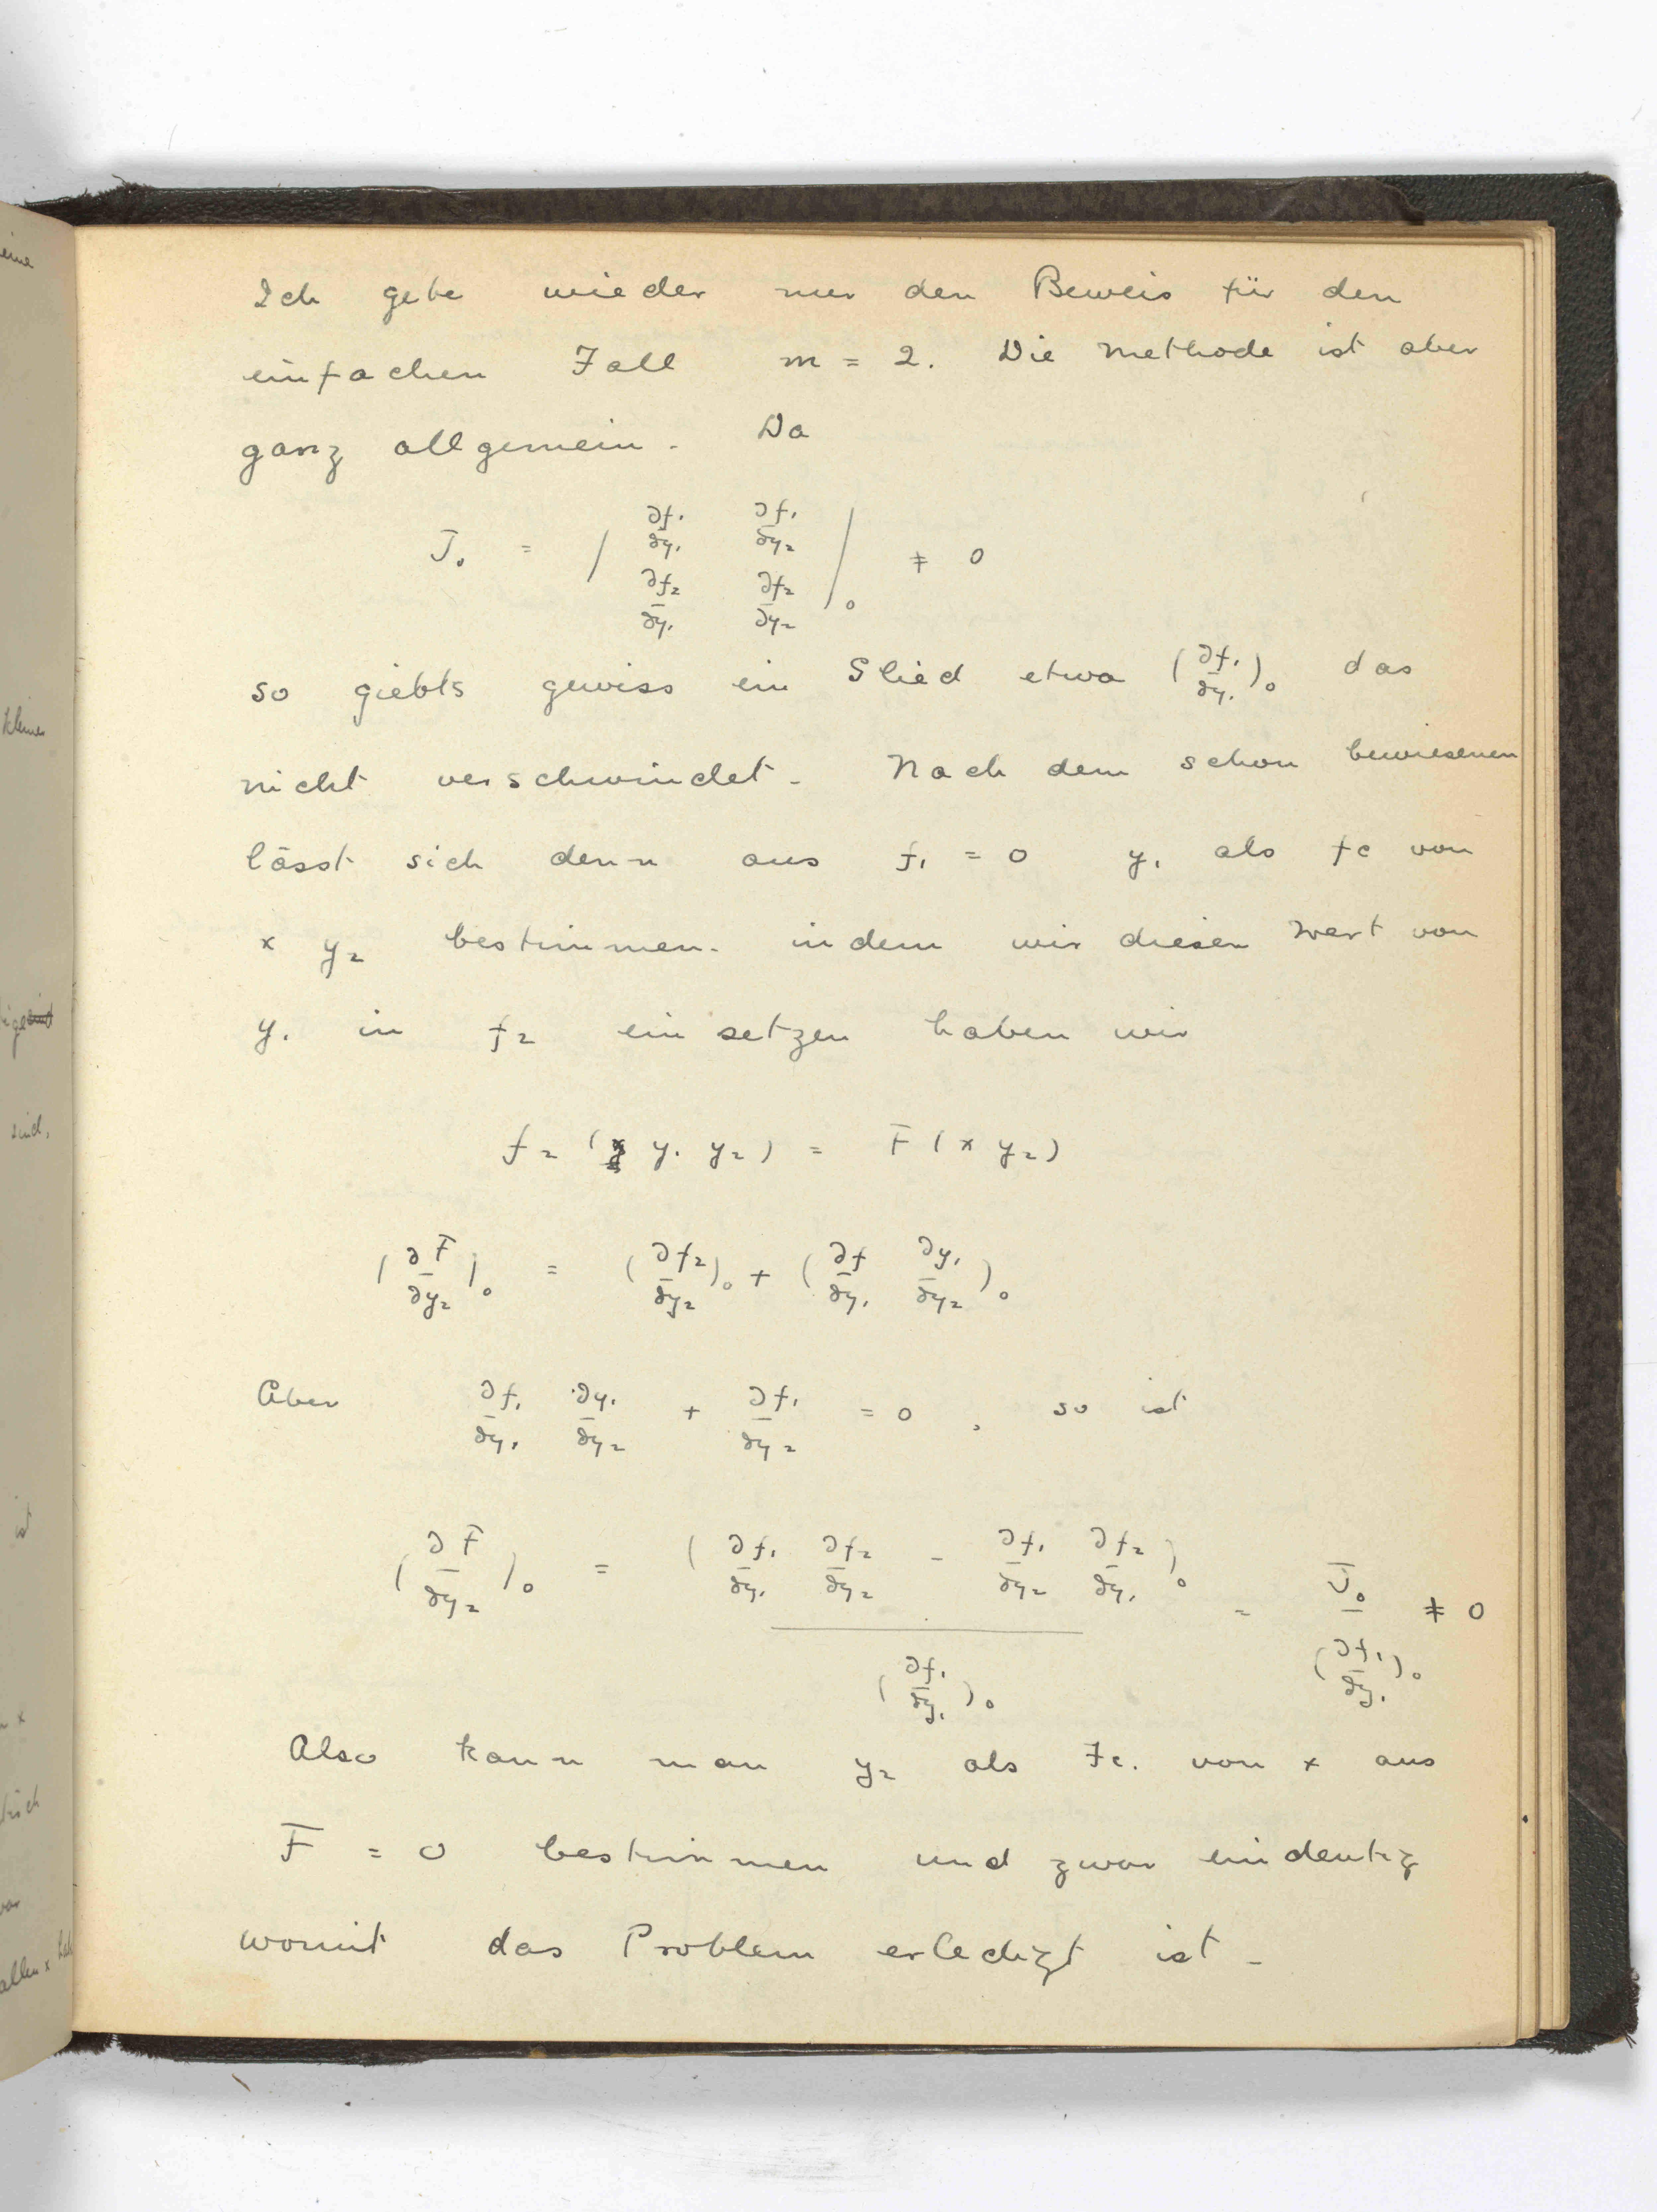 Ich gebe wieder nur den Beweis für den
einfachen Fall m = 2. Die Methode ist aber
ganz allgemein. Da
J₀ = | ∂f₁/∂y₁ ∂f₁/∂y₂ ; ∂f₂/∂y₁ ∂f₂/∂y₂ |₀ ≠ 0
so giebts gewiss ein Glied etwa (∂f₁/∂y₁)₀ das
nicht verschwindet. Nach dem schon bewiesenen
lässt sich denn aus f₁ = 0 y₁ als fc von
x y₂ bestimmen. indem wir diesen Wert von
y₁ in f₂ einsetzen haben wir
f₂ (x y₁ y₂) = F (x y₂)
(∂F/∂y₂)₀ = (∂f₂/∂y₂)₀ + (∂f/∂y₁ ∂y₁/∂y₂)₀
Aber ∂f₁/∂y₁ ∂y₁/∂y₂ + ∂f₁/∂y₂ = 0, so ist
(∂F/∂y₂)₀ = (∂f₁/∂y₁ ∂f₂/∂y₂ - ∂f₁/∂y₂ ∂f₂/∂y₁)₀ / (∂f₁/∂y₁)₀ = J₀ / (∂f₁/∂y₁)₀ ≠ 0
Also kann man y₂ als Fc. von x aus
F = 0 bestimmen und zwar eindeutig
womit das Problem erledigt ist.
eine
kleiner
sind,
ist
allen x